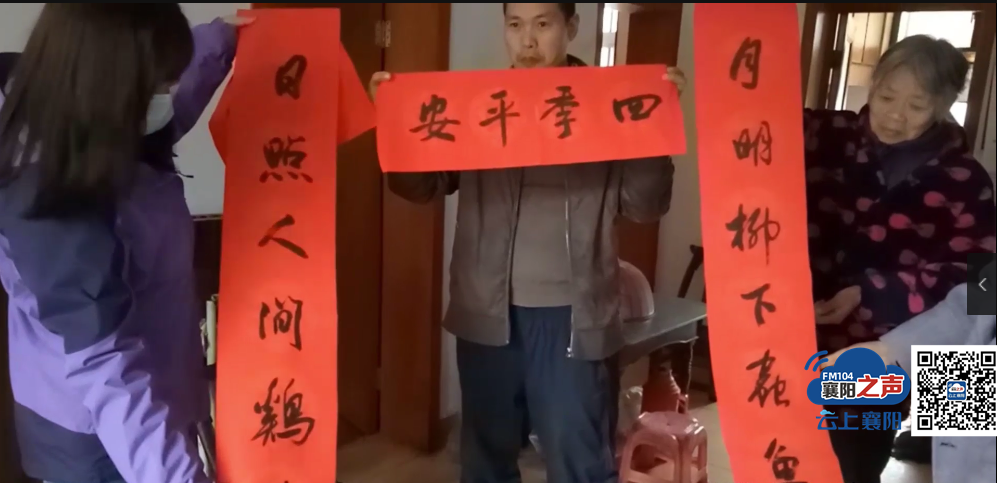 四季平安
月明柳下
日照人間鷄
FM104
襄阳之声
云上襄阳